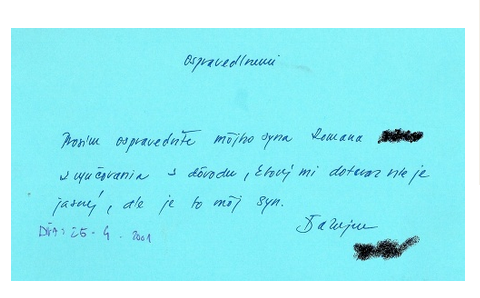 Ospravedlnenie
Prosím ospravedlňte môjho syna Romana
z vyučovania z dôvodu, ktorý mi doteraz nie je
jasný, ale je to môj syn.
Ďakujem
Dňa: 25. 4. 2001